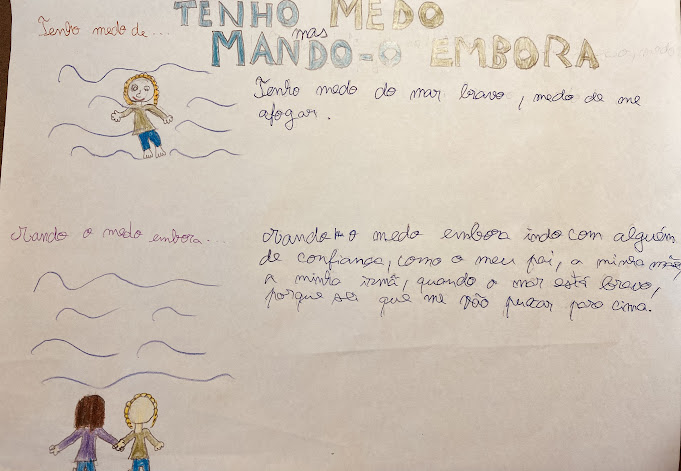 TENHO MEDO
Tenho medo de...
mas
MANDO-O EMBORA
Tenho medo do mar bravo, medo de me
afogar.
Mando o medo embora...
Mando o medo embora indo com alguém
de confiança, como o meu pai, a minha mãe,
a minha irmã, quando o mar está bravo,
porque sei que me vão puxar para cima.